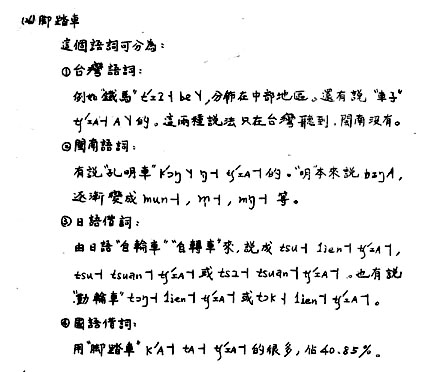 (24)腳踏車
這個語詞可分為：
①台灣語詞：
例如"鐵馬" t'iʔ˥ be˥˧,分佈在中部地區。還有說"車子"
tʃ'ia˧ a˥˧的。這兩種說法只在台灣聽到，閩南沒有。
②閩南語詞：
有說"孔明車" k'ɔŋ˥˧ ŋ˧ tʃ'ia˧ 的。"明"本來說 biŋ˧,
逐漸變成 mun˧, m˧, mŋ˧ 等。
③日語借詞：
由日語"自輪車""自轉車"來，說成 tsu˧ lien˧ tʃ'ia˧,
tsu˧ tsuan˧ tʃ'ia˧ 或 tsu˧ tsuan˧ tʃ'ia˧。也有說
"動輪車" tɔŋ˧ lien˧ tʃ'ia˧ 或 tɔk˧ lien˧ tʃ'ia˧。
④國語借詞：
用"腳踏車" k'a˧ ta˧ tʃ'ia˧ 的很多，佔40.85%。